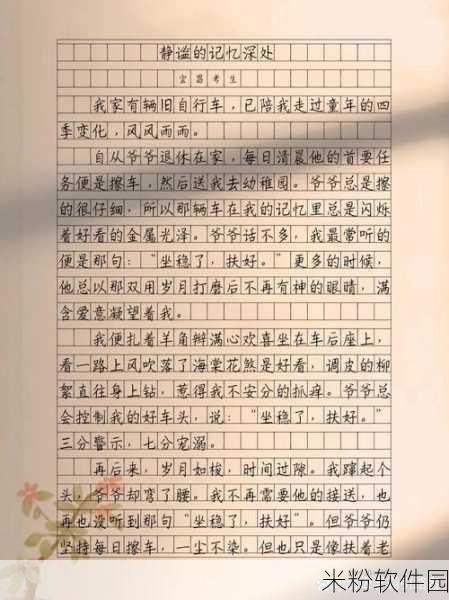 静谧的记忆深处
宜昌考生
我家有辆旧自行车，已陪我走过童年的四
季变化，风风雨雨。
自从爷爷退休在家，每日清晨他的首要任
务便是擦车，然后送我去幼稚园。爷爷总是擦
的很仔细，所以那辆车在我的记忆里总是闪烁
着好看的金属光泽。爷爷话不多，我最常听的
便是那句：“坐稳了，扶好。”更多的时候，
他总以那双用岁月打磨后不再有神的眼睛，满
含爱意凝望着我。
我便扎着羊角辫满心欢喜坐在车后座上，
看一路上风吹落了海棠花煞是好看，调皮的柳
絮直往身上钻，惹得我不安分的抓痒。爷爷总
会控制我的好车头，说：“坐稳了，扶好。”
三分警示，七分宠溺。
再后来，岁月如梭，时间过隙。我蹿起个
头，爷爷却弯了腰。我不再需要他的接送，也
再也没听到那句“坐稳了，扶好”。但爷爷仍
坚持每日擦车，一尘不染。但也只是像扶着老
米粉软件园